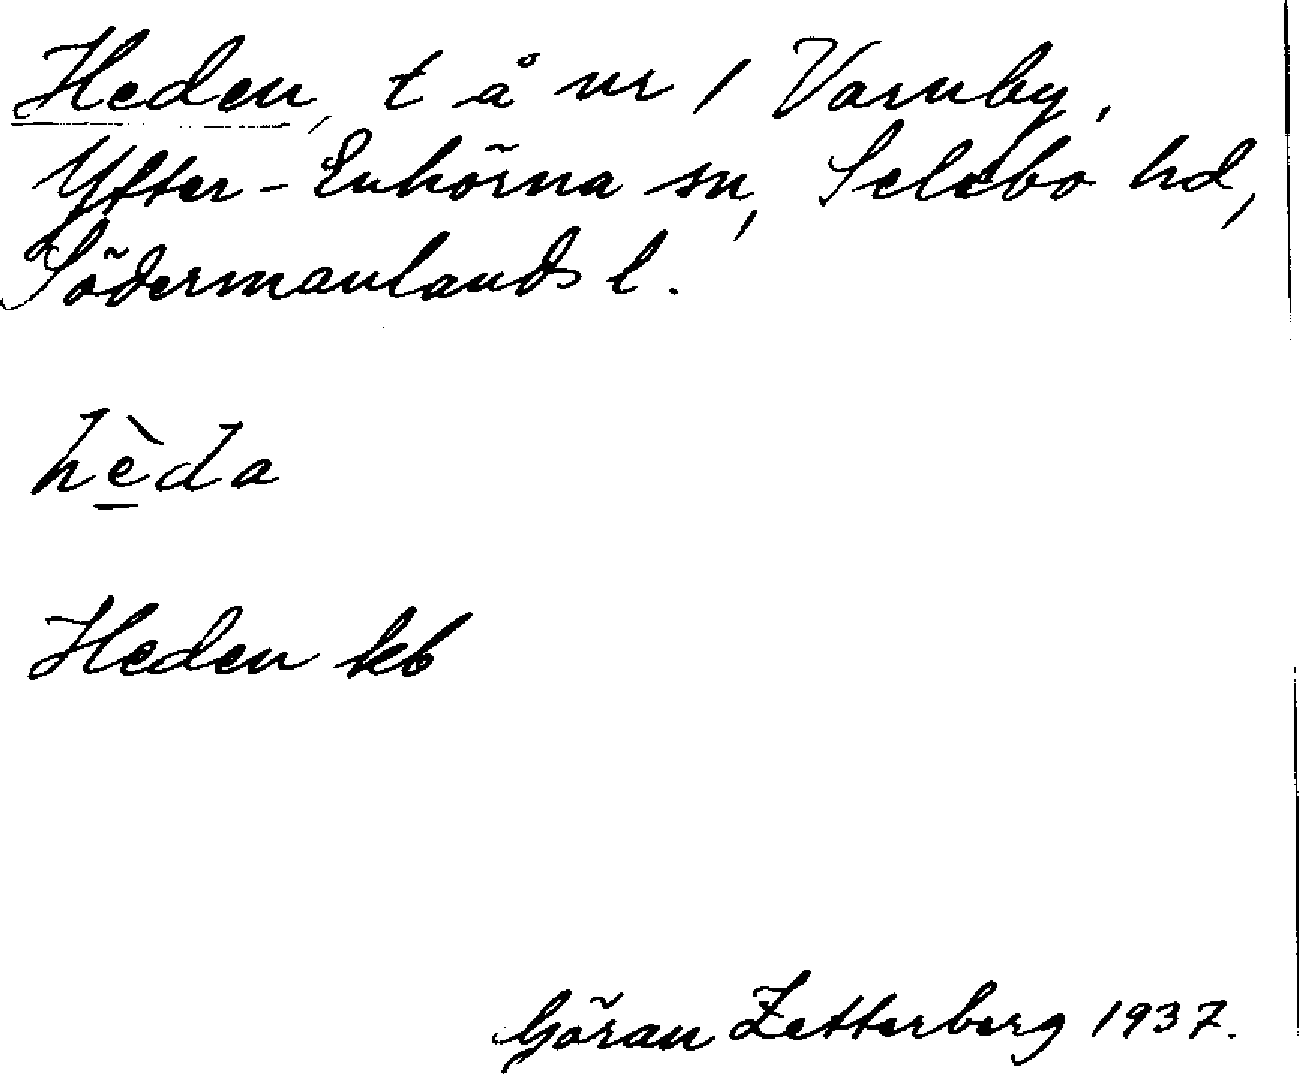 Heden, t å nr 1 Varuby,
Ytter-Enhörna sn, Selebo hd,
Södermanlands l.
hèda
Heden kb
Göran Zetterberg 1937.